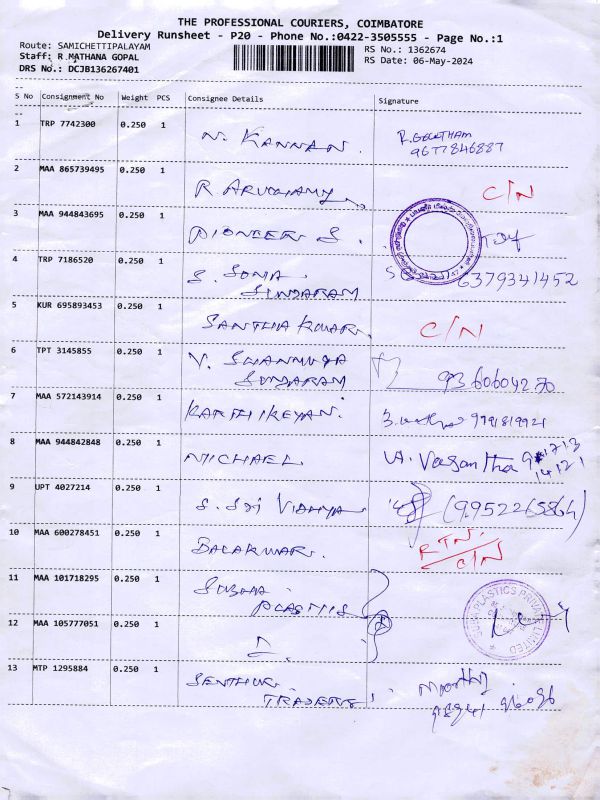 THE PROFESSIONAL COURIERS, COIMBATORE
Delivery Runsheet - P20 - Phone No.:0422-3505555 - Page No.:1
Route: SAMICHETTIPALAYAM
RS No.: 1362674
Staff: R.MATHANA GOPAL
RS Date: 06-May-2024
DRS No.: DCJB136267401
S No Consignment No Weight PCS Consignee Details Signature
1 TRP 7742300 0.250 1 N. KANNAN. R. GOUTHAM
9677846887
2 MAA 865739495 0.250 1 R ARUCHAMY C/N
3 MAA 944843695 0.250 1 PIONEER S.
4 TRP 7186520 0.250 1 S. SOMA 6379341452
SUNDARAM
5 KUR 695893453 0.250 1 SANTHA KUMAR. C/N
6 TPT 3145855 0.250 1 V. SHANMUGA
SUNDARAM 9360604270
7 MAA 572143914 0.250 1 KARTHIKEYAN.
8 MAA 944842848 0.250 1 MICHAEL Vasantha
9 UPT 4027214 0.250 1 S. SRI VIDHYA (9952265864)
10 MAA 600278451 0.250 1 BALAKUMAR. RTN.
C/N
11 MAA 101718295 0.250 1 SUBHA
PLASTICS
PLASTICS PRIVATE LIMITED
12 MAA 105777051 0.250 1
13 MTP 1295884 0.250 1 SENTHUR
TRADERS